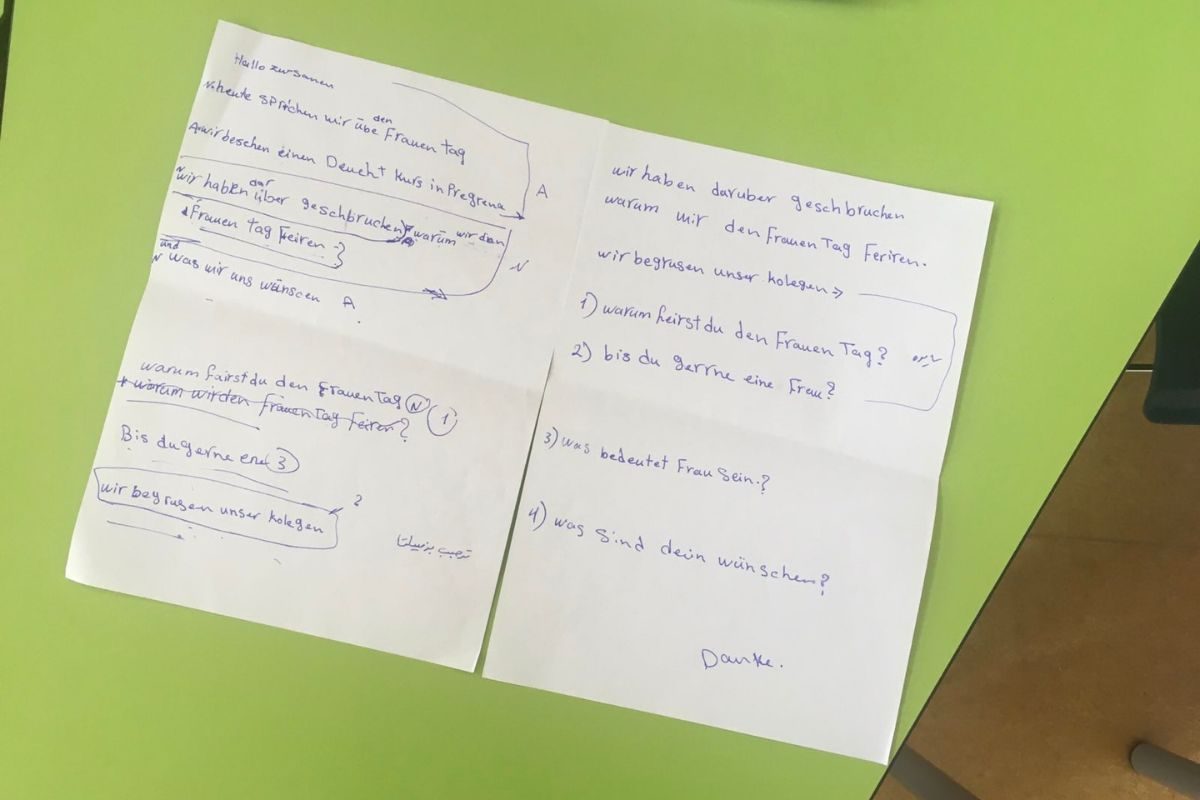 Hallo zursamen
N. heute sprichen wir übe den Frauen tag
A wir beschen einen Deucht Kurs in Pregrena
A
N wir haben dar über geschbruchen warum wir dan
Frauen tag Feiren
N
und
N was wir uns wünscen A
warum fairst du den Frauen Tag N 1
warum wir den Frauen Tag Feiren?
Bis du gerne ene 3
?
wir begrusen unser kolegen
wir haben daruber geschbruchen
warum mir den Frauen Tag Feriren.
wir begrusen unser kolegen →
1) warum feirst du den Frauen Tag?
2) bis du gerrne eine Freu?
3) was bedeutet Frau Sein.?
4) was Sind dein wünschen?
Danke.